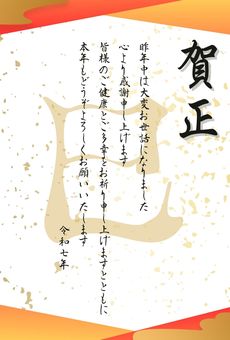 賀正
昨年中は大変お世話になりました
心より感謝申し上げます
皆様のご健康とご多幸をお祈り申し上げますとともに
本年もどうぞよろしくお願いいたします
令和七年
巳